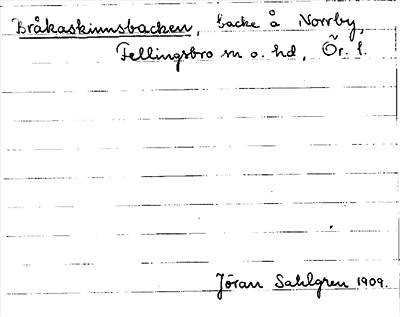 Bråkaskinnsbacken, backe å Norrby,
Fellingsbro sn o. hd, Ör. l.
Jöran Sahlgren 1909.